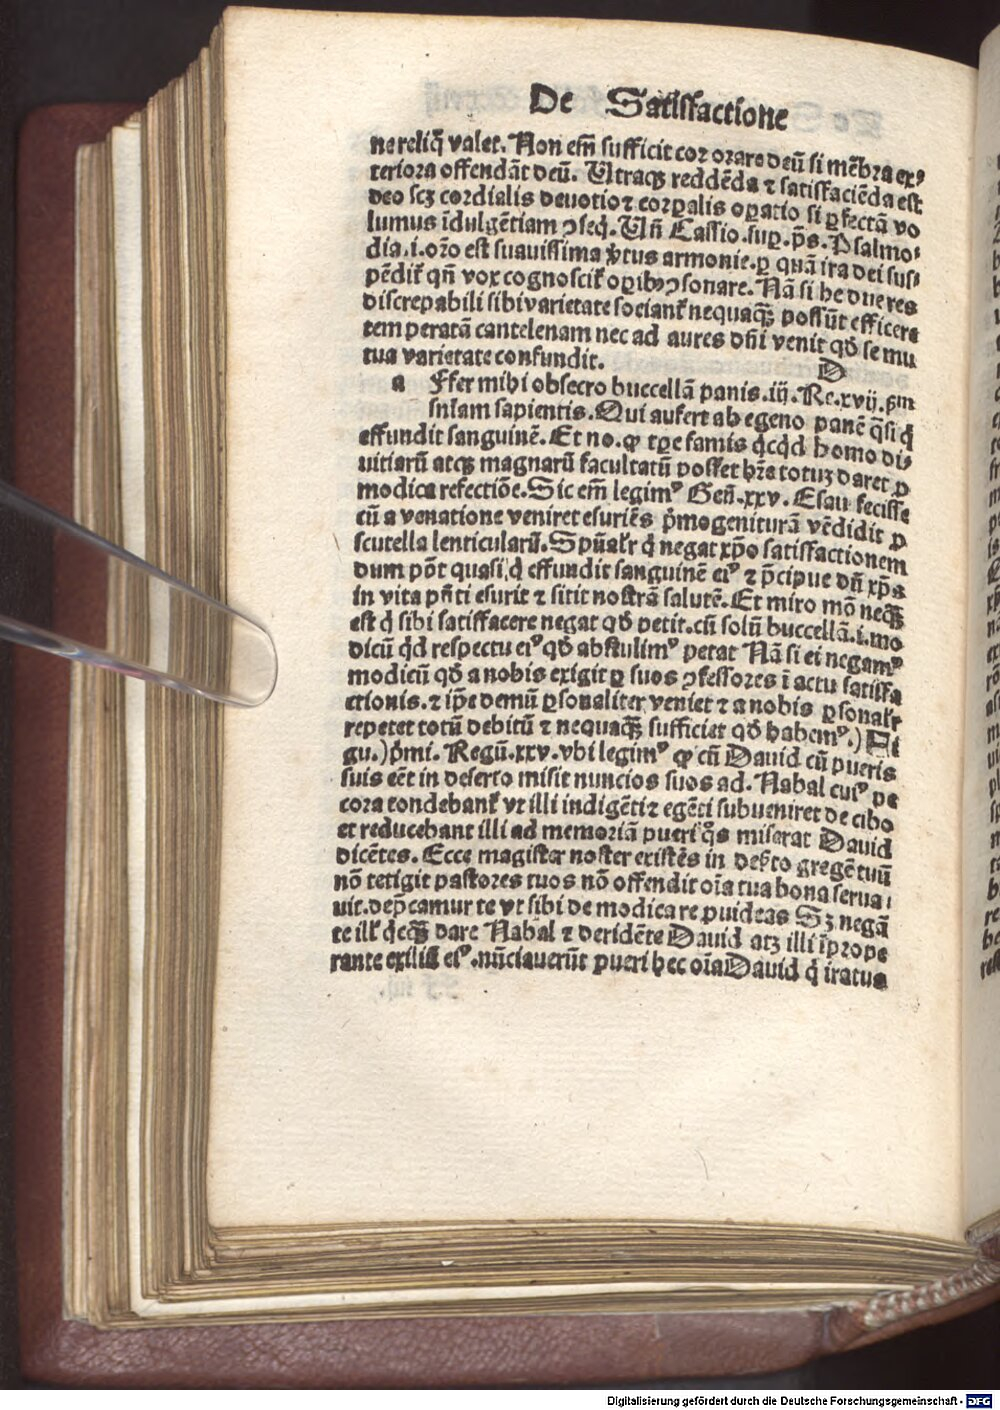 De Satisfactione
ne reliq̃ valet. Non em̃ sufficit cor orare deũ si mẽbra ex⸗
teriora offendãt deũ. Utraq; reddẽda ⁊ satisfaciẽda est
deo scʒ cordialis deuotio ⁊ corꝑalis oꝑatio si ꝑfectã vo
lumus ĩdulgẽtiam ꝯseq̃. Uñ Cassio. suꝑ. p̃s. Psalmo⸗
dia .i. oꝛ̃o est suauissima v̓tus armonie. ꝑ quã ira dei sus⸗
pẽdit̃ qñ vox cognoscit̃ oꝑibꝰ ꝯsonare. Nã si he due res
discrepabili sibi varietate sociant̃ nequaq̃ʒ possũt efficere
tem peratã cantelenam nec ad aures dñi venit qđ se mu
tua varietate confundit. D
a Ffer mihi obsecro buccellã panis. iij. Re. xvij. ẜm
sñiam sapientis. Qui aufert ab egeno panẽ q̃si q̇
effundit sanguinẽ. Et no. ꝙ tꝑe famis q̇cq̇d homo di⸗
uitiarũ atq; magnarũ facultatũ posset hr̃e totuʒ daret ꝓ
modica refectiõe. Sic em̃ legimꝰ Geñ. xxv. Esau fecisse
cũ a venatione veniret esuriẽs p̃mogeniturã vẽdidit ꝓ
scutella lenticularũ. Spũalr̃ q̇ negat xp̃o satisfactionem
dum põt quasi q̇ effundit sanguinẽ eiꝰ ⁊ p̃cipue dñ xp̃s
in vita pñti esurit ⁊ sitit nostrã salutẽ. Et miro mõ neq̃ʒ
est q̇ sibi satisfacere negat qđ petit. cũ solũ buccellã .i. mo
dicũ q̇d respectu eiꝰ qđ abstulimꝰ petat Nã si ei negamꝰ
modicũ qđ a nobis exigit ꝑ suos ꝯfessores ĩ actu satisfa
ctionis. ⁊ ip̃e demũ ꝑsonaliter veniet ⁊ a nobis ꝑsonalr̃
repetet totũ debitũ ⁊ nequaq̃ʒ sufficiet qđ habemꝰ.) Fi
gu.) p̃mi. Regũ. xxv. vbi legimꝰ ꝙ cũ Dauid cũ pueris
suis eẽt in deserto misit nuncios suos ad. Nabal cuiꝰ pe
cora tondebant̃ vt illi indigẽti ⁊ egẽti subueniret de cibo
et reducebant illi ad memoriã pueri q̃s miserat Dauid
dicẽtes. Ecce magister noster existẽs in des̃to gregẽ tuũ
nõ tetigit pastores tuos nõ offendit oĩa tua bona serua⸗
uit. dep̃camur te vt sibi de modica re ꝓuideas Sʒ negã
te ill̃ q̇cq̃ʒ dare Nabal ⁊ deridẽte Dauid atʒ illi ĩprope
rante exiliũ eiꝰ. nũciauerũt pueri hec oĩa Dauid q̇ iratus
Digitalisierung gefördert durch die Deutsche Forschungsgemeinschaft - DFG